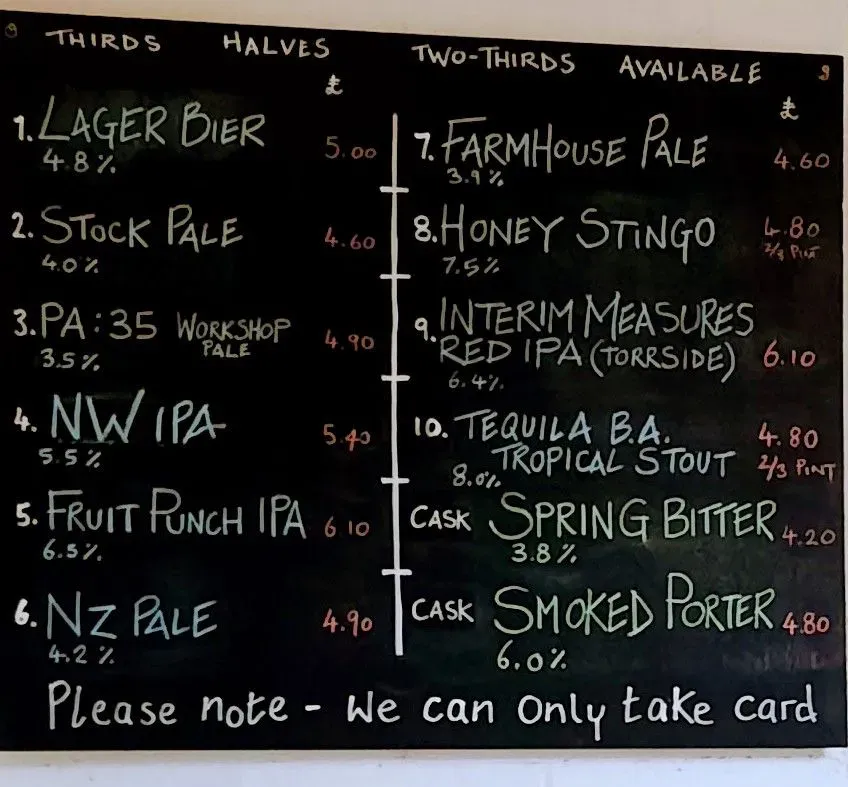 THIRDS HALVES TWO-THIRDS AVAILABLE
£
1. LAGER BIER 5.00
4.8%
2. STOCK PALE 4.60
4.0%
3. PA:35 WORKSHOP PALE 4.90
3.5%
4. NW IPA 5.40
5.5%
5. FRUIT PUNCH IPA 6.10
6.5%
6. NZ PALE 4.90
4.2%
£
7. FARMHOUSE PALE 4.60
3.9%
8. HONEY STINGO 4.80
7.5% 2/3 PINT
9. INTERIM MEASURES
RED IPA (TORRSIDE) 6.10
6.4%
10. TEQUILA B.A. 4.80
TROPICAL STOUT 2/3 PINT
8.0%
CASK SPRING BITTER 4.20
3.8%
CASK SMOKED PORTER 4.80
6.0%
Please note - We can only take card